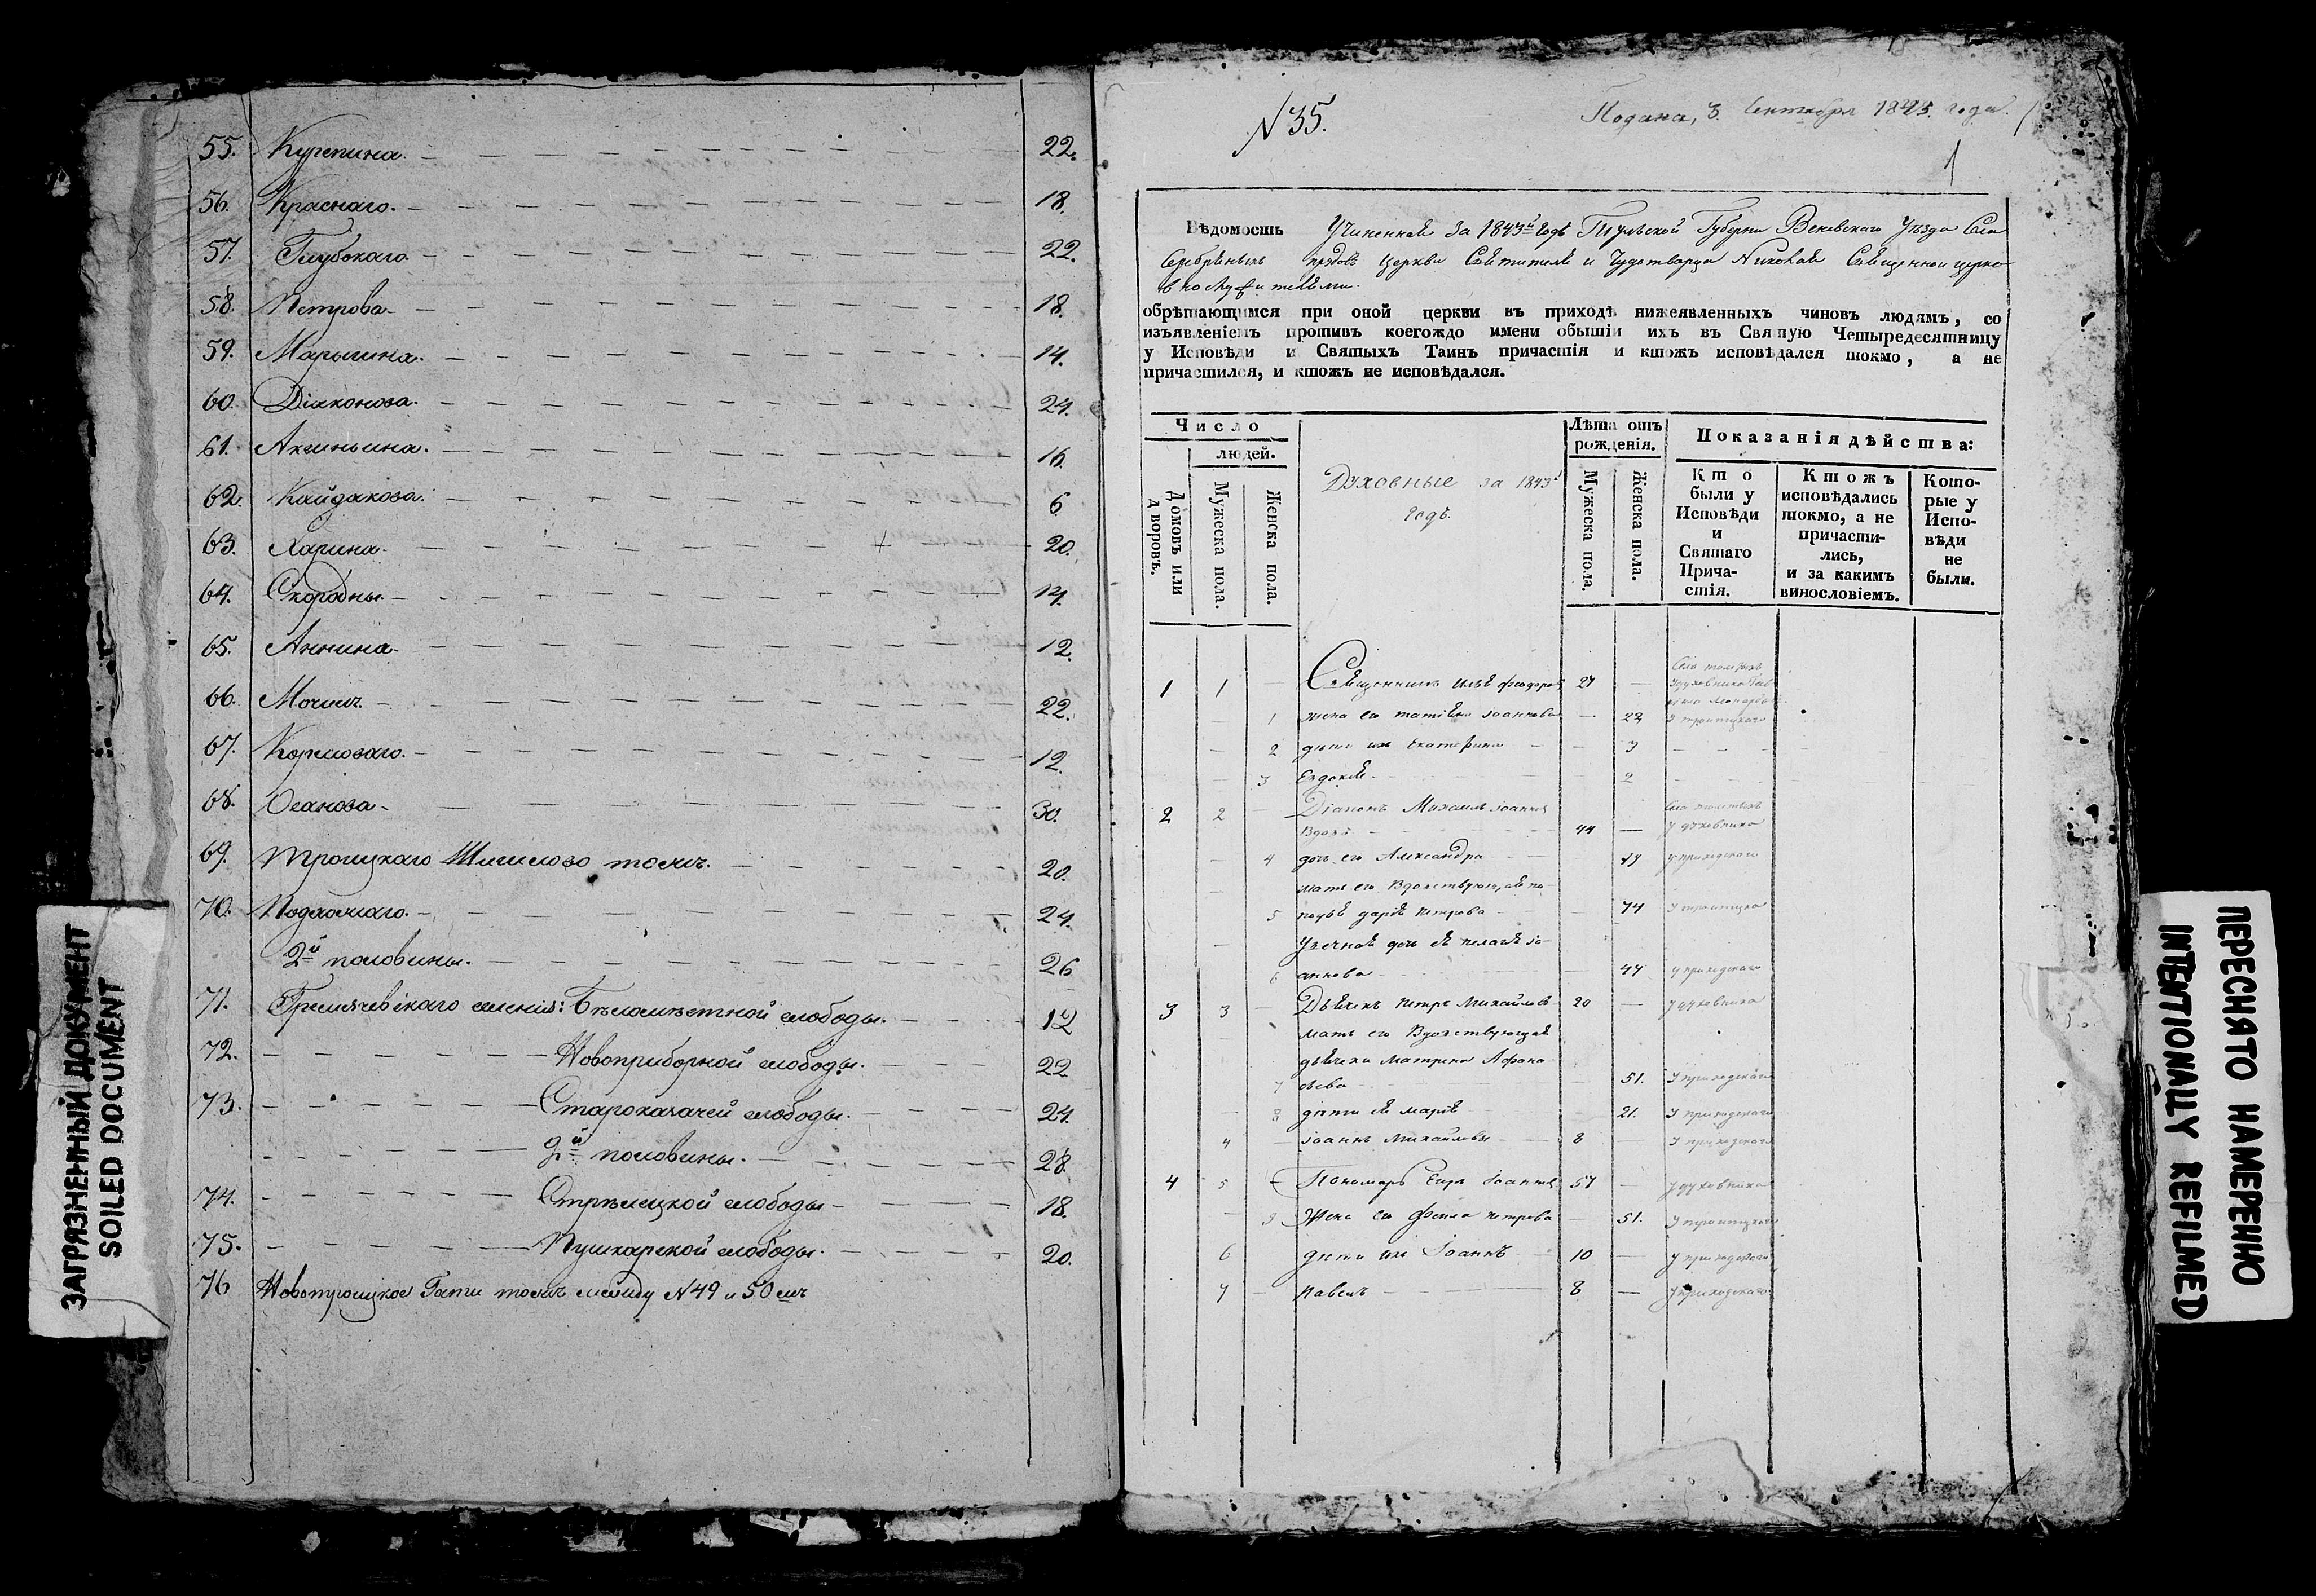 55. Курепина. 22.
56. Краснаго. 18.
57. Глубокаго. 22.
58. Петрова. 18.
59. Марыгина. 14.
60. Дiяконова. 24.
61. Аксиньина. 16.
62. Кайдакова. 6
63. Харина. 20.
64. Скородны. 14.
65. Аннина. 12.
66. Мочилъ 22.
67. Кормоваго. 12.
68. Осанова. 30.
69. Троицкаго тожъ. 20.
70. Подхожаго. 24.
2й половины. 26
71. Гремячевскаго селенiя: Бѣломѣстной слободы. 12
72. Новоприборной слободы. 22
73. Староказачей слободы. 24.
2й половины. 28
74. Стрѣлецкой слободы 18.
75. Пушкарской слободы. 20.
76 Новотроицкое Гати тожъ между N 49 и 50 мъ
ЗАГРЯЗНЕННЫЙ ДОКУМЕНТ
SOILED DOCUMENT
N 35.
Подана, 3. Сентября 1843. года.
1
Вѣдомость Учиненная За 1843й Годъ Тульской Губернiи Веневскаго Уѣзда Села
Серебряныхъ прудовъ Церкви Святителя и Чудотворца Николая Священно и церко
вно служителями.
обрѣтающимся при оной церкви въ приходѣ нижеявленныхъ чиновъ людямъ, со
изъявленiемъ противъ коегождо имени бытiи ихъ въ Святую Четыредесятницу
у Исповѣди и Святыхъ Таинъ причастiя и ктожъ исповѣдался токмо, а не
причастился, и ктожъ не исповѣдался.
Число
людей.
Домовъ или
дворовъ.
Мужеска пола.
Женска пола.
Духовные за 1843й
годъ.
Лѣта отъ
рожденiя.
Мужеска пола.
Женска пола.
Показанiя дѣйства:
Кто
были у
Исповѣди
и
Святаго
Прича-
стiя.
Ктожъ
исповѣдались
токмо, а не
причасти-
лись,
и за какимъ
винословiемъ.
Кото-
рые у
Испо-
вѣди
не
были.
1 1 Священникъ Феодоровъ 27
1 жена его Татiяна Iоаннова 22
2 дѣти ихъ Екатерина 3
3 Евдокiя 2
2 2 Дiаконъ Михаилъ Iоанновъ
Вдовъ 44 у духовника
4 дочь его Александра 19 у приходскаго
мать его Вдовствующая по-
5 падья Дарья Петрова 74
Увечная дочь ея Пелагея Iо-
6 аннова 44 у приходскаго
3 3 Дьячекъ Петръ Михайловъ 20 у духовника
мать его Вдовствующая
дьячиха Матрена Афана
7 сьева 51. у приходскаго
8 дѣти ея Марья 21. у приходскаго
4 Iоаннъ Михайловы 8 у приходскаго
4 5 Пономарь Егоръ Iоанновъ 57 у духовника
9 Жена его Фекла Петрова 51.
6 дѣти ихъ Iоаннъ 10 у приходскаго
7 Павелъ 8 у приходскаго
ПЕРЕСНЯТО НАМЕРЕННО
INTENTIONALLY REFILMED